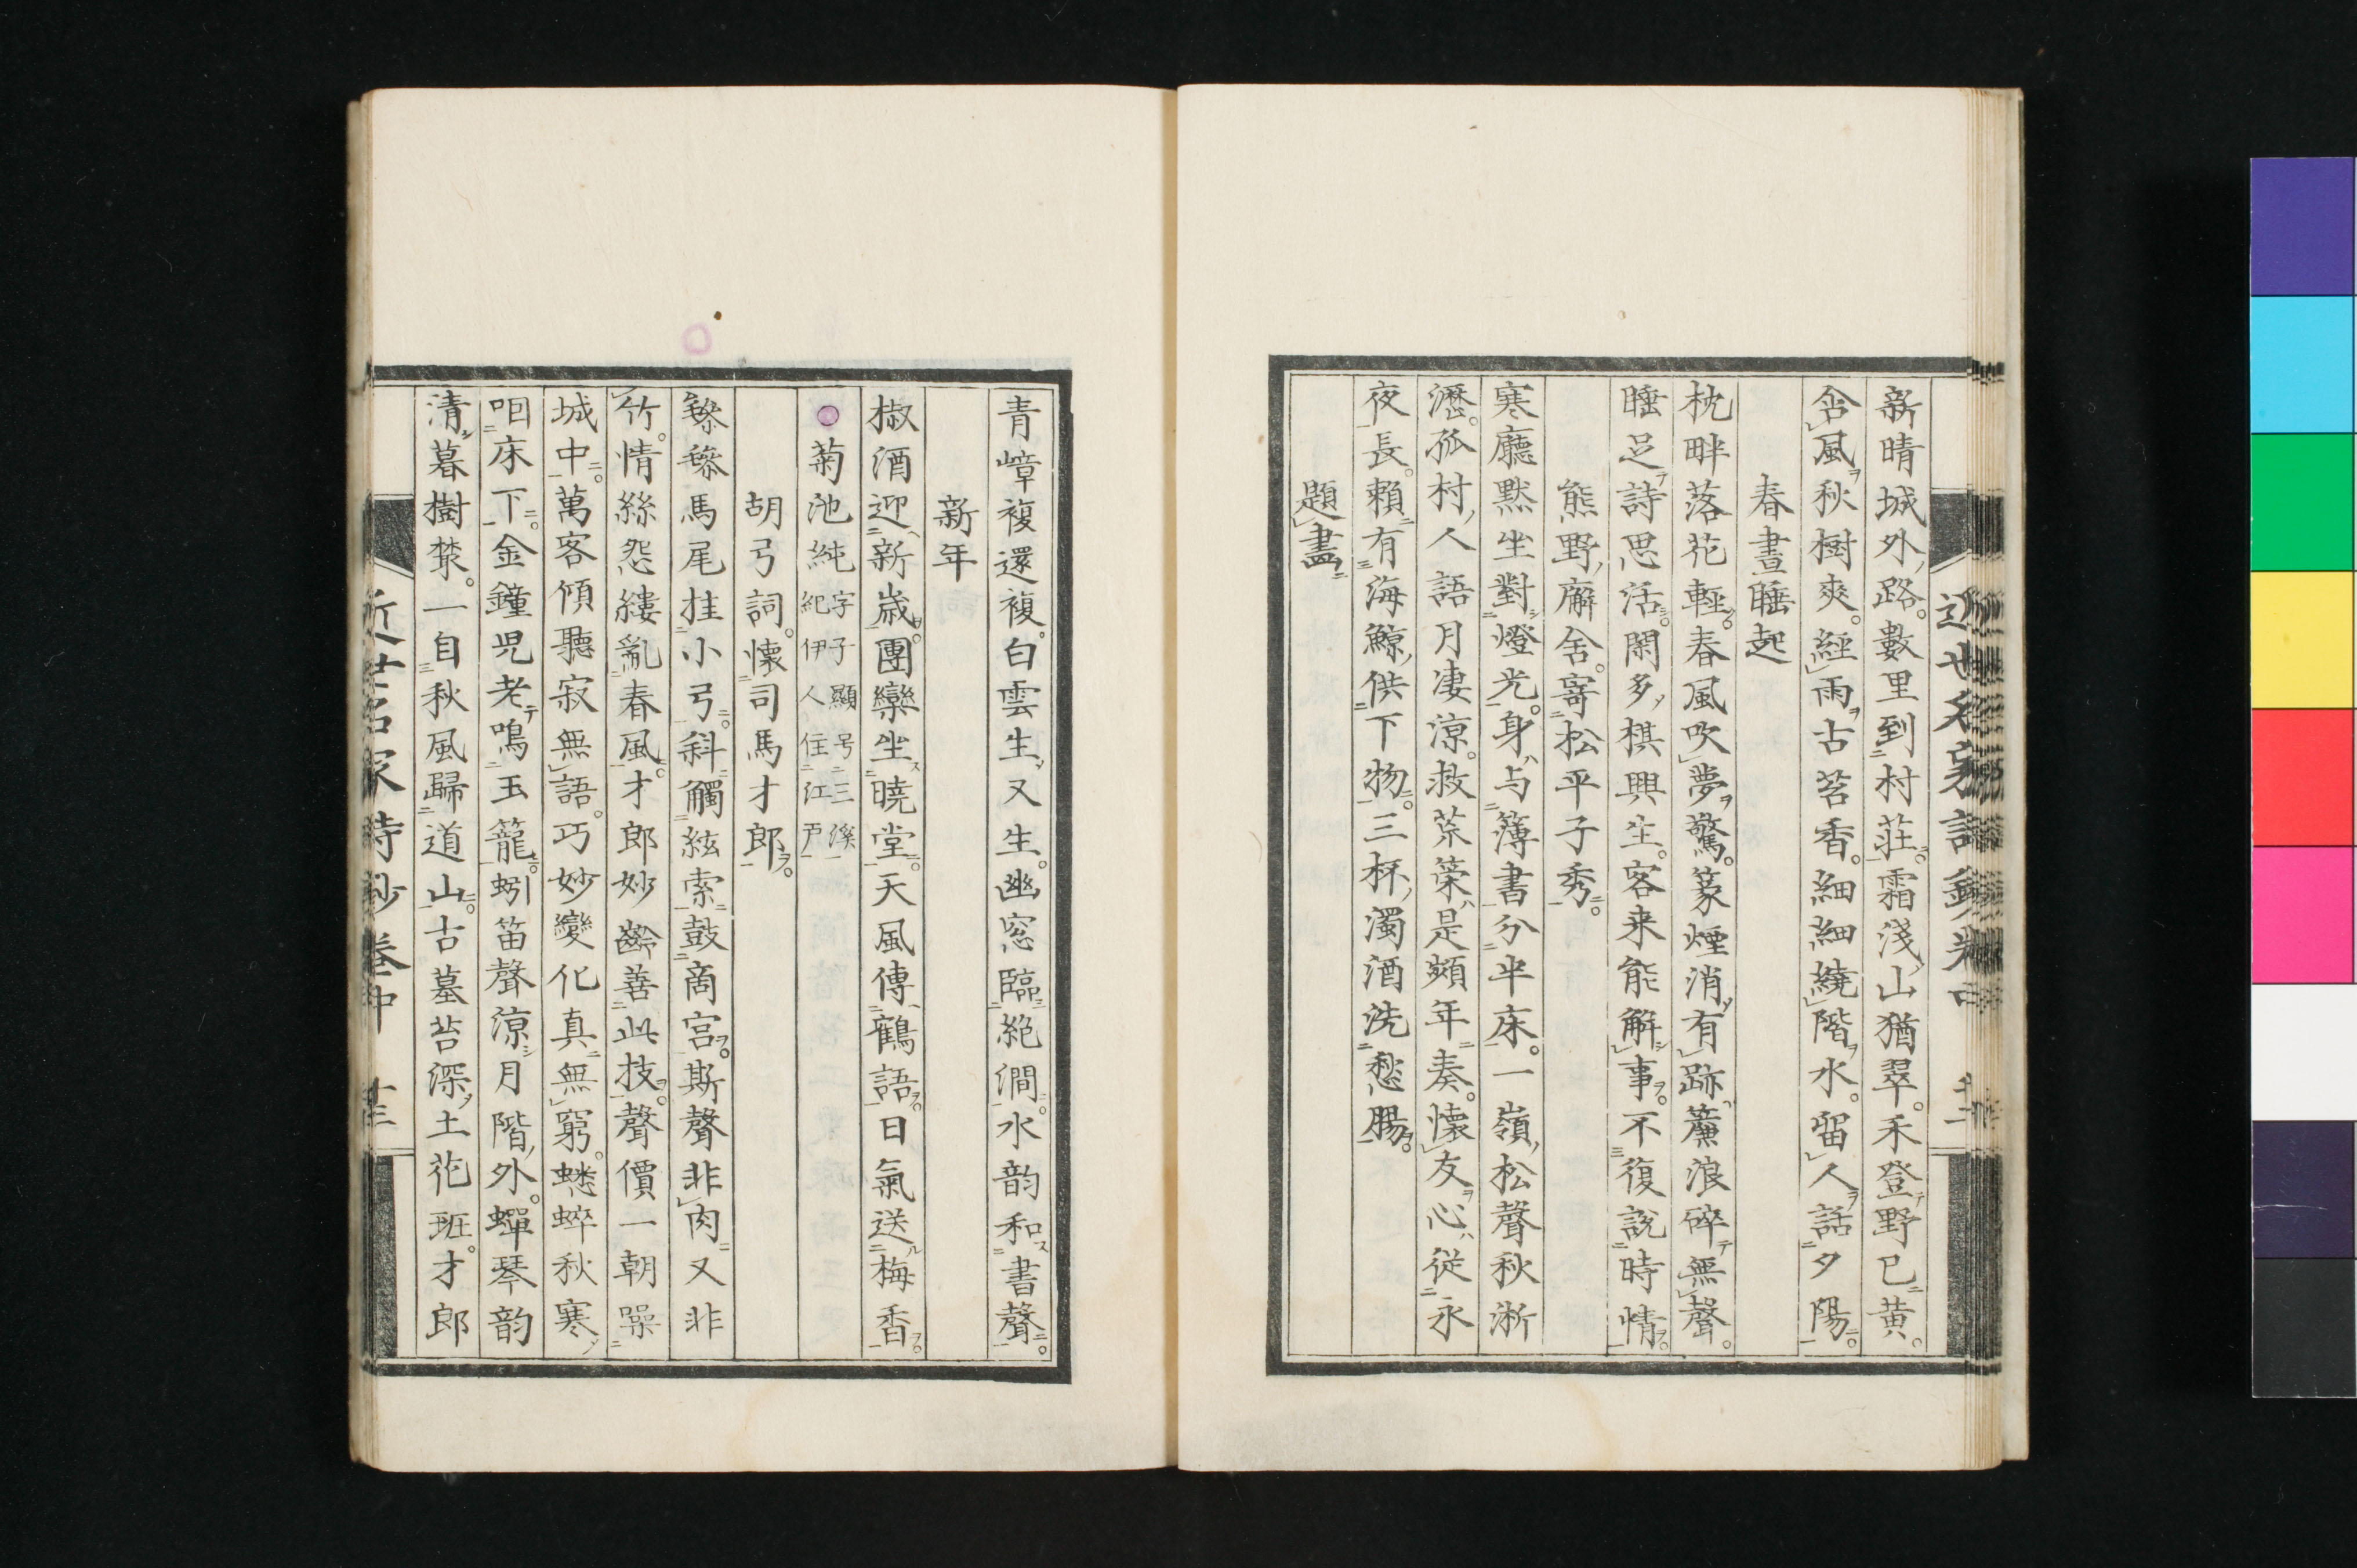 新晴城外路。數里到村荘。霜淺山猶翠。禾登野已黄。
含風秋樹爽。經雨古苔香。細細繞階水。留人話夕陽。
春晝睡起
枕畔落花輕。春風吹夢驚。篆煙消有跡。簾浪碎無聲。
睡足詩思活。閑多棋興生。客来能解事。不復説時情。
熊野廨舍。寄松平子秀。
寒廳黙坐對燈光。身与簿書分半床。一嶺松聲秋淅
瀝。孤村人語月凄涼。救荒策是頻年奏。懐友心從永
夜長。頼有海鯨供下物。三杯濁酒洗愁腸。
題畫
青嶂複還複。白雲生又生。幽窓臨絶澗。水韵和書聲。
新年
椒酒迎新歳。團欒坐曉堂。天風傳鶴語。日氣送梅香。
菊池純 字子顯号三溪 紀伊人住江戸
胡弓詞。懐司馬才郎。
鬖鬖馬尾挂小弓。斜觸絃索鼓商宮。斯聲非肉又非
竹。情絲怨縷亂春風。才郎妙齡善此技。聲價一朝噪
城中。萬客傾聽寂無語。巧妙變化真無窮。蟋蟀秋寒
咽床下。金鐘児老鳴玉籠。蚓笛聲涼月階外。蟬琴韵
清暮樹
一自秋風歸道山。古墓苔深土花班。才郎
近世名家詩鈔卷中